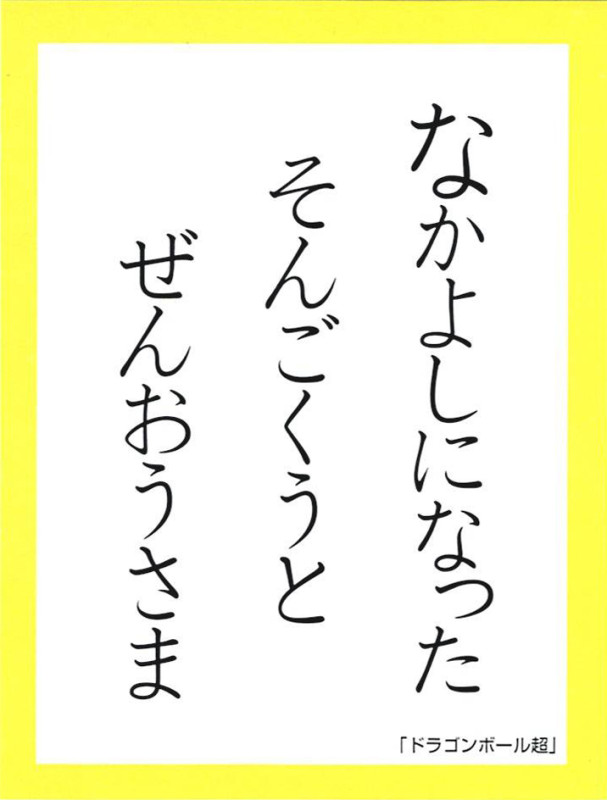 なかよしになった
そんごくうと
ぜんおうさま
「ドラゴンボール超」